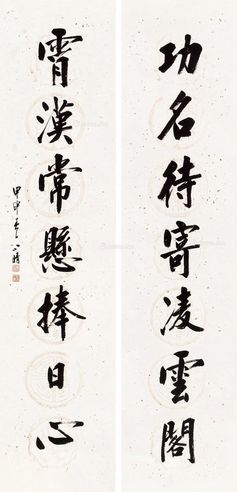 功名待寄凌雲閣
霄漢常懸捧日心
甲申